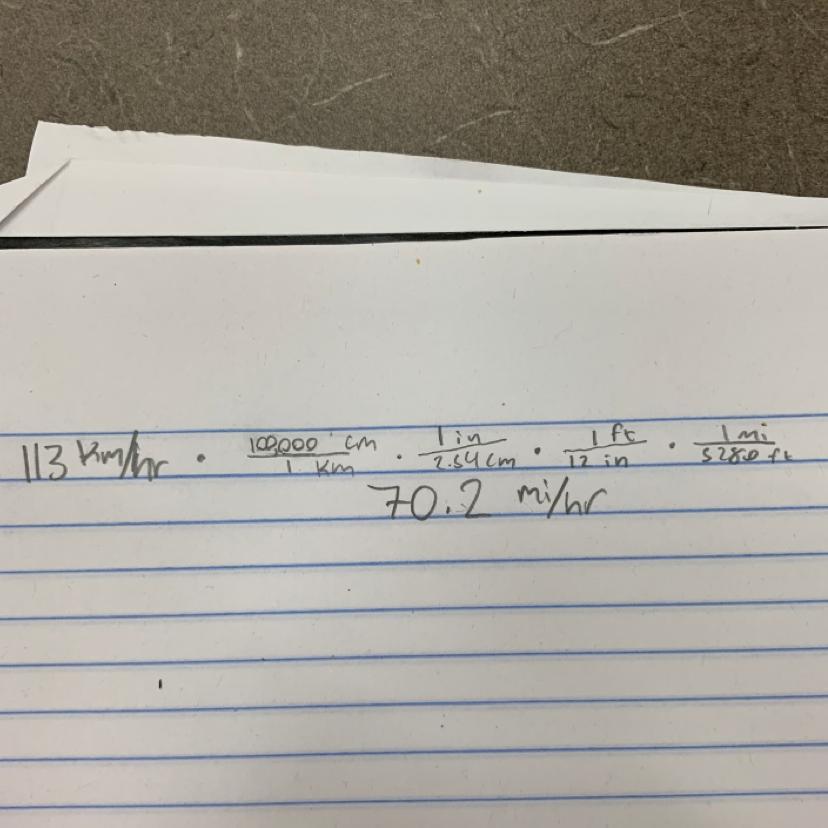 113 Km/hr · 100,000 cm / 1 Km · 1 in / 2.54 cm · 1 ft / 12 in · 1 mi / 5280 ft
70.2 mi/hr